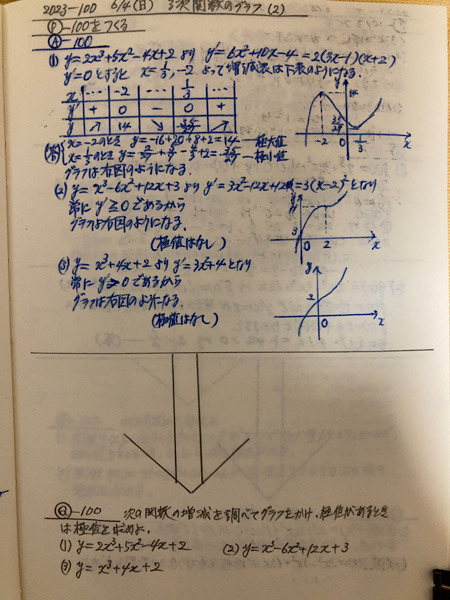 2023-100 6/4(日) 3次関数のグラフ(2)
Ⓟ-100をつくる
Ⓐ-100
(1) y=2x³+5x²-4x+2 より y'=6x²+10x-4=2(3x-1)(x+2)
y'=0とすると x=1/3, -2 よって増減表は下表のようになる。
x … -2 … 1/3 …
y' + 0 - 0 +
y ↗ 14 ↘ ↗
(答) x=-2のとき y=-16+20+8+2=14 —極大値
x=1/3のとき —極小値
グラフは右図のようになる。
14
-2 0 1/3 x
(2) y=x³-6x²+12x+3 より y'=3x²-12x+12=3(x-2)²となり
常に y'≧0 であるから
グラフは右図のようになる。
(極値はなし)
y
3
0 2 x
(3) y=x³+4x+2 より y'=3x²+4となり
常に y'>0 であるから
グラフは右図のようになる。
(極値はなし)
y
2
0 x
Ⓠ-100 次の関数の増減を調べてグラフをかけ、極値があるとき
は極値を求めよ。
(1) y=2x³+5x²-4x+2 (2) y=x³-6x²+12x+3
(3) y=x³+4x+2